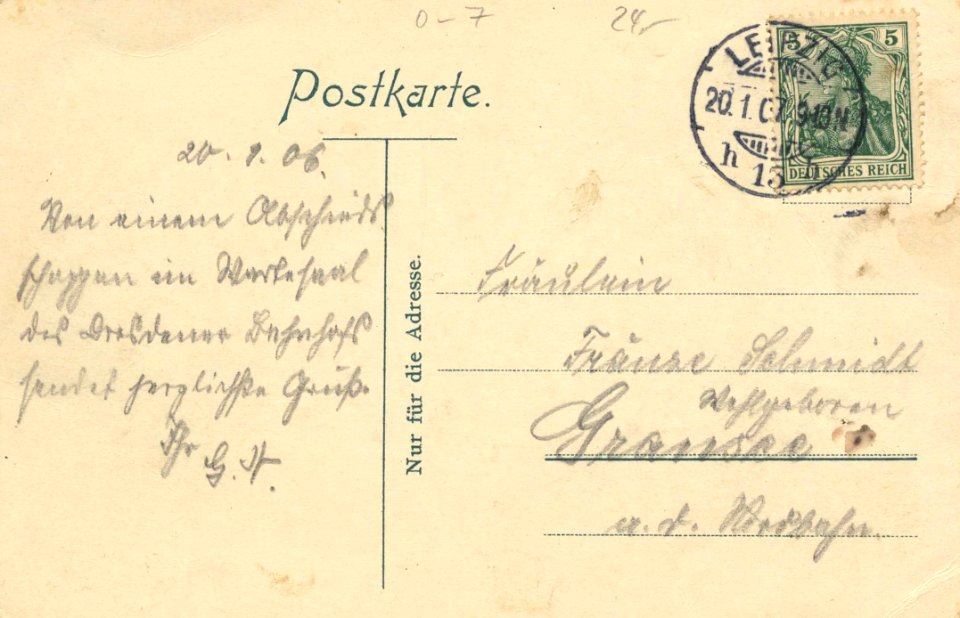 0-7
24,-
Postkarte.
LEIPZIG
20.1.07. 9-10 N
h 13 h
5 5
DEUTSCHES REICH
20. 1. 06.
Von einem Abschieds
schoppen im Wartesaal
des Dresdener Bahnhofs
sendet herzlichste Grüße
Ihr
G. N.
Nur für die Adresse.
Fräulein
Fränze Schmidt
Wohlgeboren
Gransee
a. d. Nordbahn.